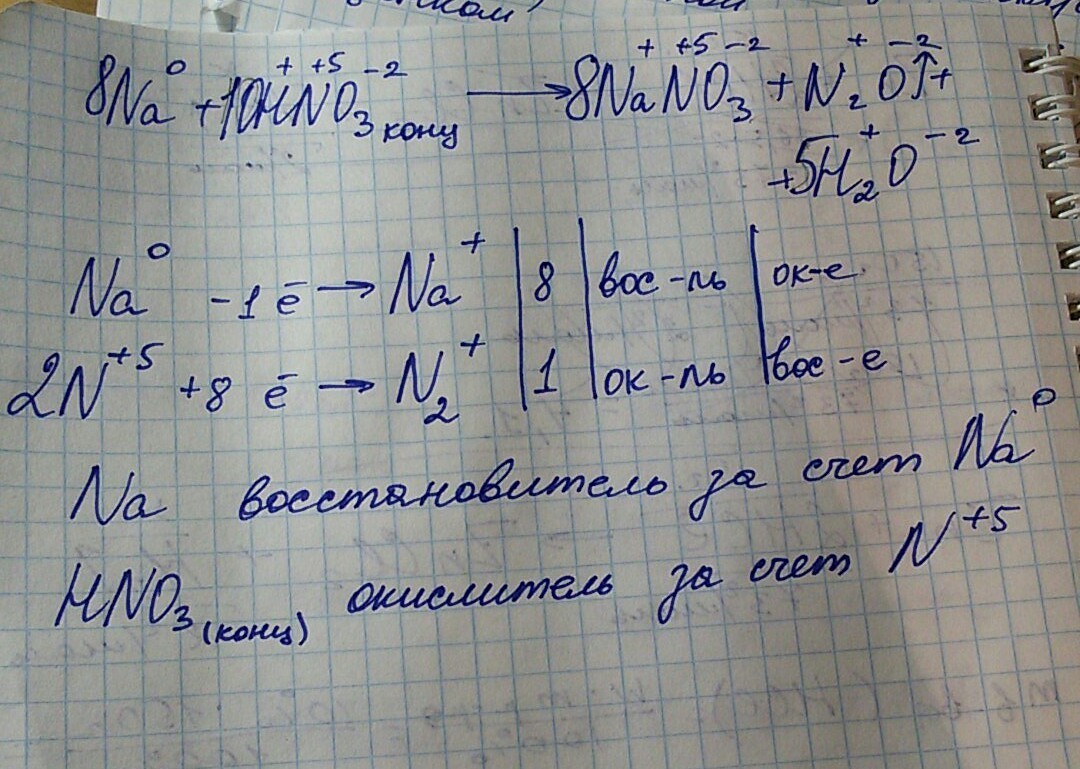 8Na⁰ + 10H⁺N⁺⁵O₃⁻² конц → 8Na⁺N⁺⁵O₃⁻² + N₂⁺O⁻²↑ +
+ 5H₂⁺O⁻²
Na⁰ - 1ē → Na⁺ | 8 | вос-ль | ок-е
2N⁺⁵ + 8 ē → N₂⁺ | 1 | ок-ль | вос-е
Na восстановитель за счет Na⁰
HNO₃ (конц) окислитель за счет N⁺⁵